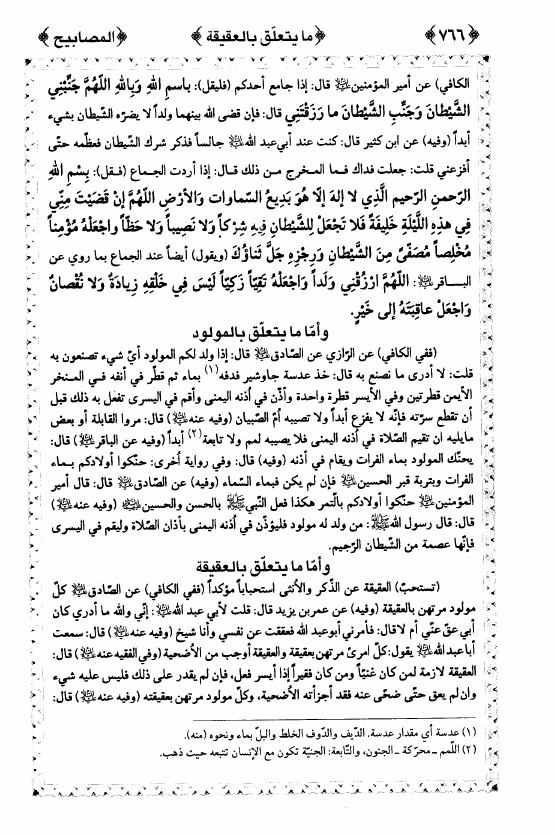 ﴿٧٦٦﴾ ﴿ما يتعلّق بالعقيقة﴾ ﴿المصابيح﴾
الكافي) عن أمير المؤمنين ﷺ قال: إذا جامع أحدكم (فليقل): باسمِ اللهِ وَبِاللهِ اللّهُمَّ جَنِّبْنِي
الشَّيْطانَ وَجَنِّبِ الشَّيْطانَ ما رَزَقْتَنِي قال: فإن قضى الله بينهما ولداً لا يضرّه الشّيطان بشيء
أبداً (وفيه) عن ابن كثير قال: كنت عند أبي عبد الله جالساً فذكر شرك الشّيطان فعظّمه حتّى
أفزعني قلت: جعلت فداك فما المخرج من ذلك قال: إذا أردت الجماع (فقل): بِسْمِ اللهِ
الرّحمنِ الرّحيمِ الَّذِي لا إِلهَ إِلّا هُوَ بَدِيعُ السّماواتِ وَالأَرْضِ اللّهُمَّ إِنْ قَضَيْتَ مِنِّي
فِي هذِهِ اللَّيْلَةِ خَلِيفَةً فَلا تَجْعَلْ لِلشَّيْطانِ فِيهِ شِرْكاً وَلا نَصِيباً وَلا حَظّاً واجْعَلْهُ مُؤْمِناً
مُخْلِصاً مُصَفّىً مِنَ الشَّيْطانِ وَرِجْزِهِ جَلَّ ثَناؤُكَ (ويقول) أيضاً عند الجماع بما روي عن
الباقر: اللّهُمَّ ارْزُقْنِي وَلَداً وَاجْعَلْهُ تَقِيّاً زَكِيّاً لَيْسَ فِي خَلْقِهِ زِيادَةٌ وَلا نُقْصانٌ
وَاجْعَلْ عاقِبَتَهُ إِلى خَيْرٍ.
وأمّا ما يتعلّق بالمولود
(ففي الكافي) عن الرازي عن الصّادق قال: إذا ولد لكم المولود أيّ شيء تصنعون به
قلت: لا أدري ما نصنع به قال: خذ عدسة جاوشير فدفه(١) بماء ثم قطّر في أنفه في المنخر
الأيمن قطرتين وفي الأيسر قطرة واحدة وأذّن في أذنه اليمنى وأقم في اليسرى تفعل به ذلك قبل
أن تقطع سرّته فإنّه لا يفزع أبداً ولا تصيبه أمّ الصّبيان (وفيه عنه) قال: مروا القابلة أو بعض
مايليه ان تقيم الصّلاة في أذنه اليمنى فلا يصيبه لمم ولا تابعة(٢) أبداً (وفيه عن الباقر) قال:
يحنّك المولود بماء الفرات ويقام في أذنه (وفيه) قال: وفي رواية أخرى: حنّكوا أولادكم بماء
الفرات وبتربة قبر الحسين فإن لم يكن فبماء السّماء (وفيه) عن الصّادق قال: قال أمير
المؤمنين حنّكوا أولادكم بالتّمر هكذا فعل النّبي ﷺ بالحسن والحسين (وفيه عنه)
قال: قال رسول الله ﷺ: من ولد له مولود فليؤذّن في أذنه اليمنى بأذان الصّلاة وليقم في اليسرى
فإنّها عصمة من الشّيطان الرّجيم.
وأمّا ما يتعلّق بالعقيقة
(تستحبّ) العقيقة عن الذّكر والأنثى استحباباً مؤكداً (ففي الكافي) عن الصّادق كلّ
مولود مرتهن بالعقيقة (وفيه) عن عمر بن يزيد قال: قلت لأبي عبد الله: إنّي والله ما أدري كان
أبي عقّ عنّي أم لا قال: فأمرني أبو عبد الله فعققت عن نفسي وأنا شيخ (وفيه عنه) قال: سمعت
أبا عبد الله يقول: كلّ امرئ مرتهن بعقيقة والعقيقة أوجب من الأضحية (وفي الفقيه عنه) قال:
العقيقة لازمة لمن كان غنيّاً ومن كان فقيراً إذا أيسر فعل، فإن لم يقدر على ذلك فليس عليه شيء
وان لم يعق حتّى ضحّى عنه فقد أجزأته الأضحية، وكلّ مولود مرتهن بعقيقته (وفيه عنه) قال:
(١) عدسة أي مقدار عدسة. الدّيف والدّوف الخلط والبلّ بماء ونحوه (منه).
(٢) اللّمم ـ محرّكة ـ الجنون، والتّابعة: الجنيّة تكون مع الإنسان تتبعه حيث ذهب.